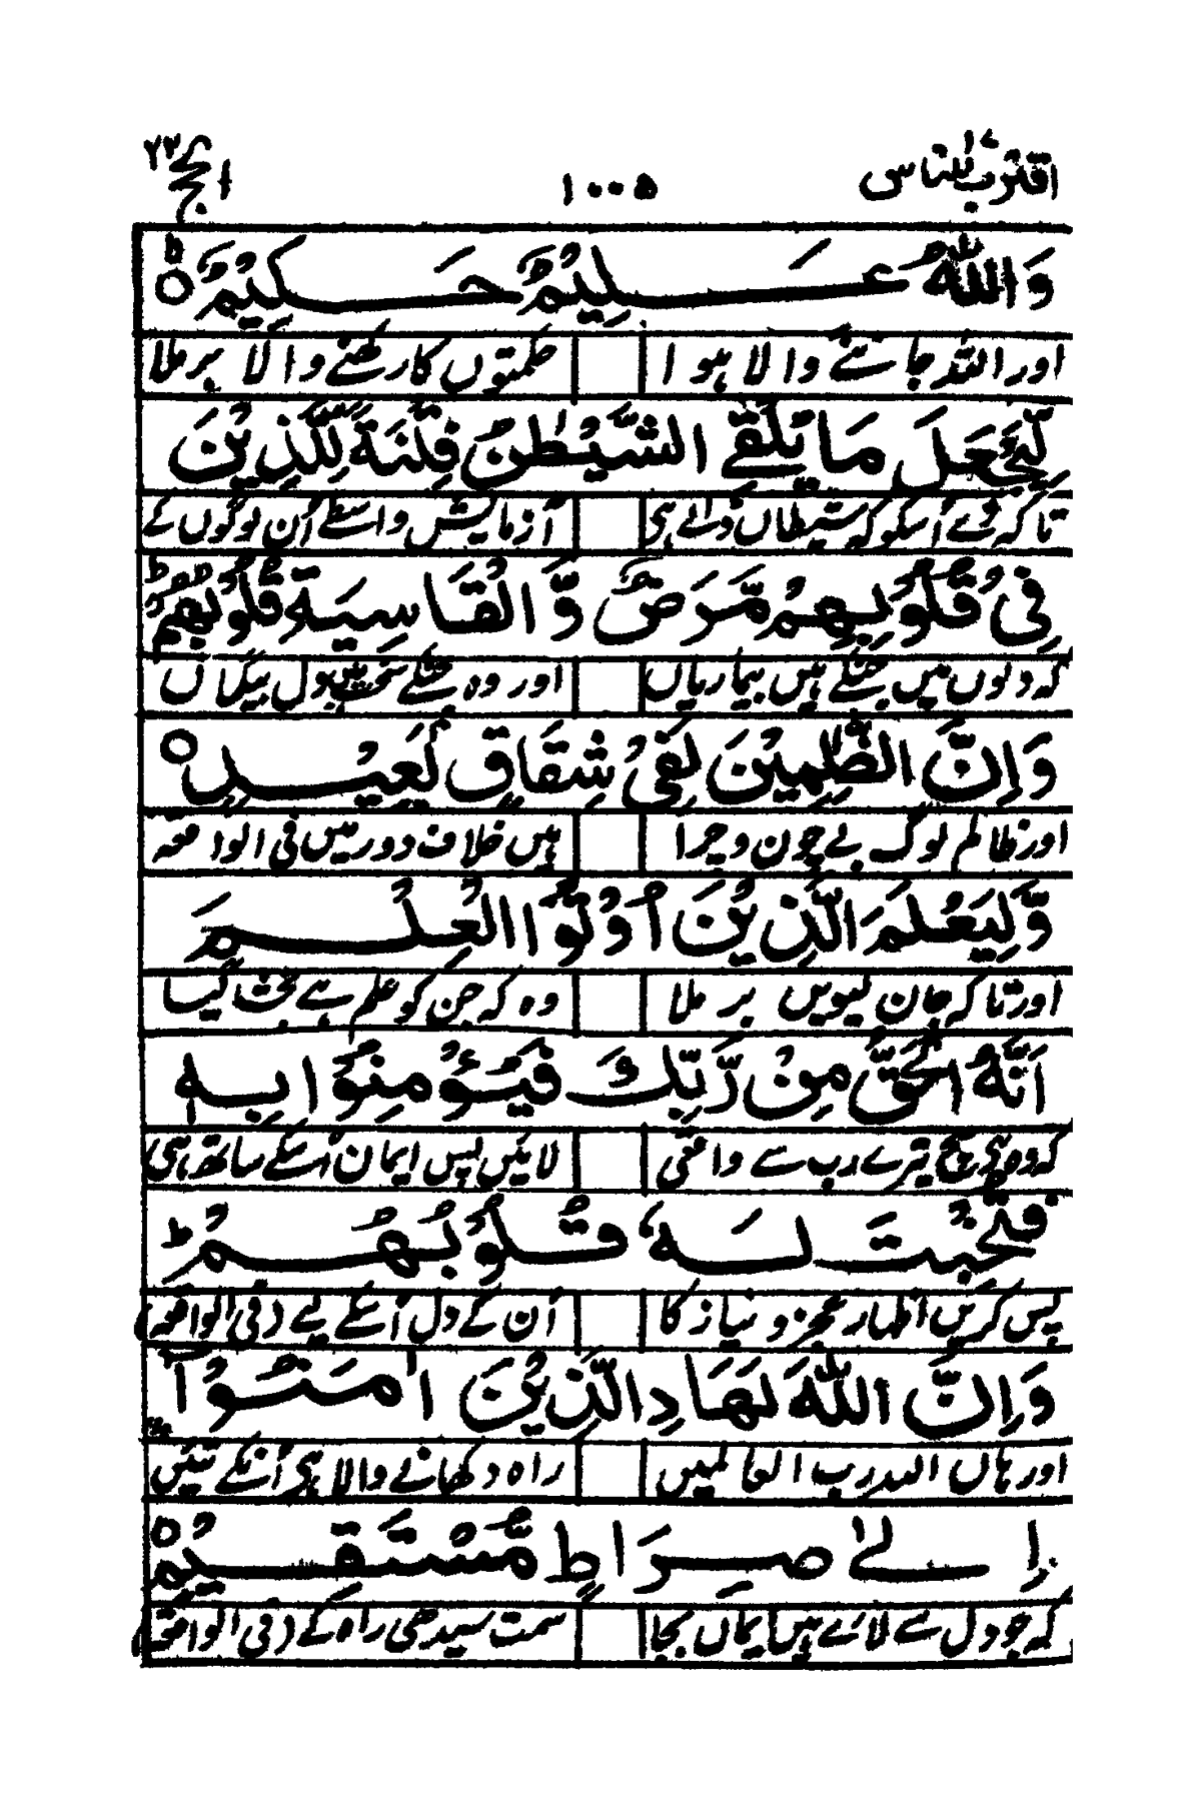 اقترب للناس ١٧ ١٠٠٥ الحج ٢٢
وَاللّٰهُ عَلِيْمٌ حَكِيْمٌ ۙ
اور اللہ جاننے والا ہوا حکمتوں کا رکھنے والا بر ملا
لِّيَجْعَلَ مَا يُلْقِي الشَّيْطٰنُ فِتْنَةً لِّلَّذِيْنَ
تاکہ اُسکو کہ شیطاں ڈالے ہی آزمایش واسطے اُن لوگوں کے
فِيْ قُلُوْبِهِمْ مَّرَضٌ وَّالْقَاسِيَةِ قُلُوْبُهُمْ ؕ
کہ دلوں میں جنکے ہیں بیماریاں اور وہ جنکے سخت ہیں دل بیگماں
وَاِنَّ الظّٰلِمِيْنَ لَفِيْ شِقَاقٍۭ بَعِيْدٍ ۙ
اور ظالم لوگ بے چون و چرا ہیں خلاف دور میں فی الواقعہ
وَّلِيَعْلَمَ الَّذِيْنَ اُوْتُوا الْعِلْمَ
اور تا کہ جان لیویں بر ملا وہ کہ جن کو علم ہے بخشا گیا
اَنَّهُ الْحَقُّ مِنْ رَّبِّكَ فَيُؤْمِنُوْا بِهٖ
کہ وہی سچ تیرے رب سے واقعی لائیں پس ایمان اُسکے ساتھ ہی
فَتُخْبِتَ لَهٗ قُلُوْبُهُمْ ؕ
پس کریں اظہار عجز و نیاز کا اُن کے دل اُسکے لیے (فی الواقعہ)
وَاِنَّ اللّٰهَ لَهَادِ الَّذِيْنَ اٰمَنُوْۤا
اور ہاں اللہ رب العالمیں راہ دکھانے والا ہی اُنکے تئیں
اِلٰى صِرَاطٍ مُّسْتَقِيْمٍ
کہ جو دل سے لائے ہیں ایماں بجا سمت سیدھی راہ کے (فی الواقعہ)